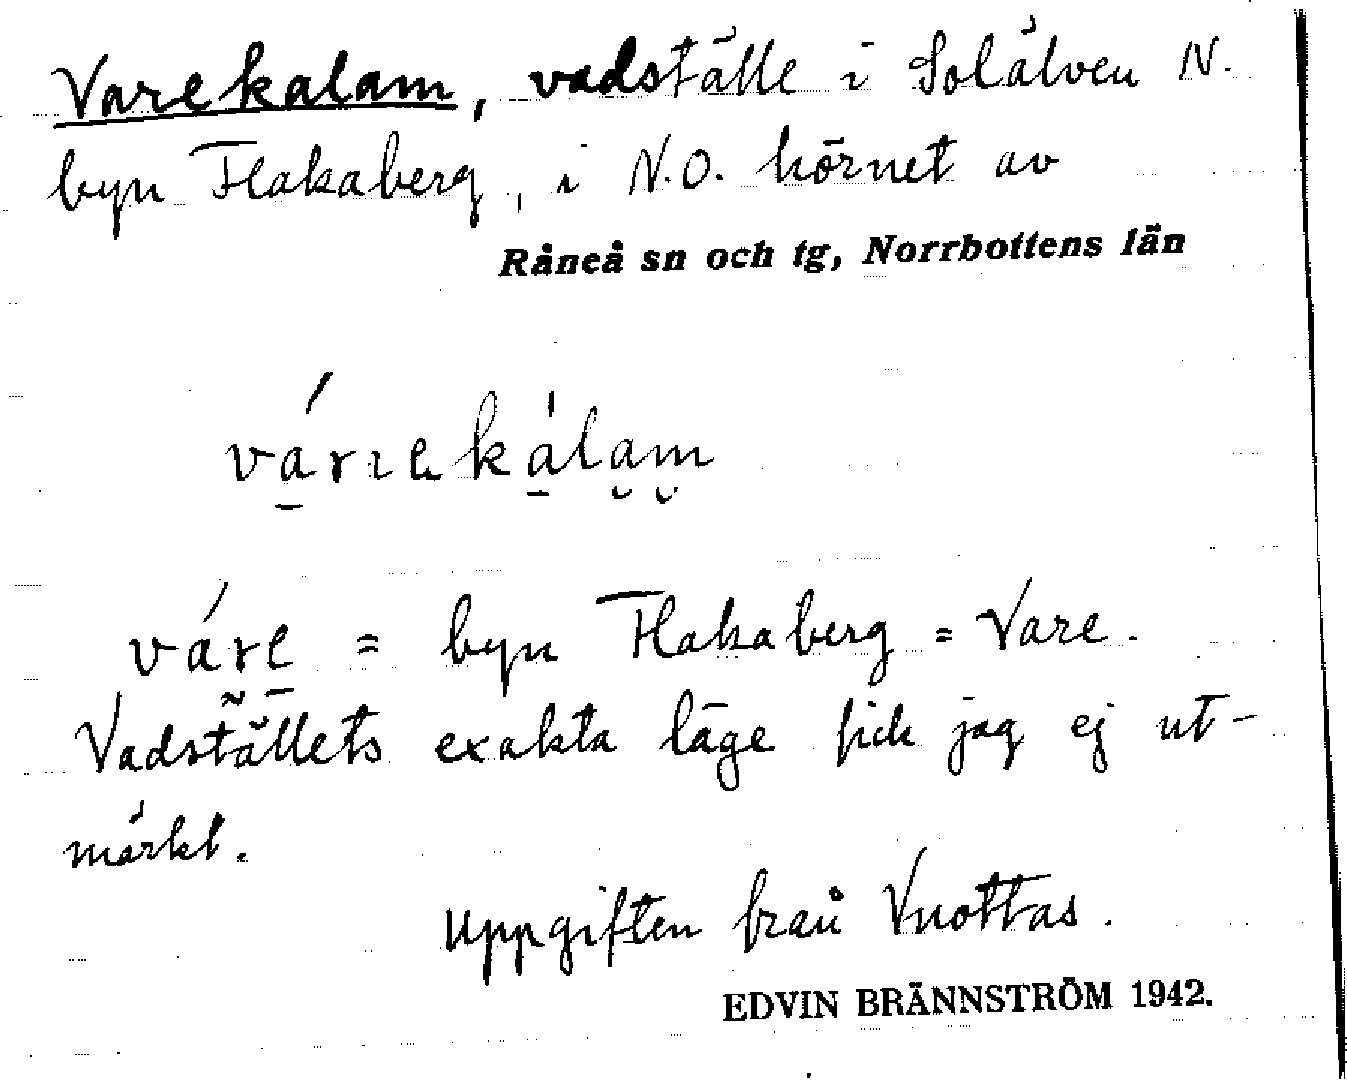 Varekalam, vadställe i Solälven N.
byn Flakaberg, i N.O. hörnet av
Råneå sn och tg, Norrbottens län
várıekálam
váre = byn Flakaberg = Vare.
Vadställets exakta läge fick jag ej ut-
märkt.
Uppgiften från Vuottas.
EDVIN BRÄNNSTRÖM 1942.